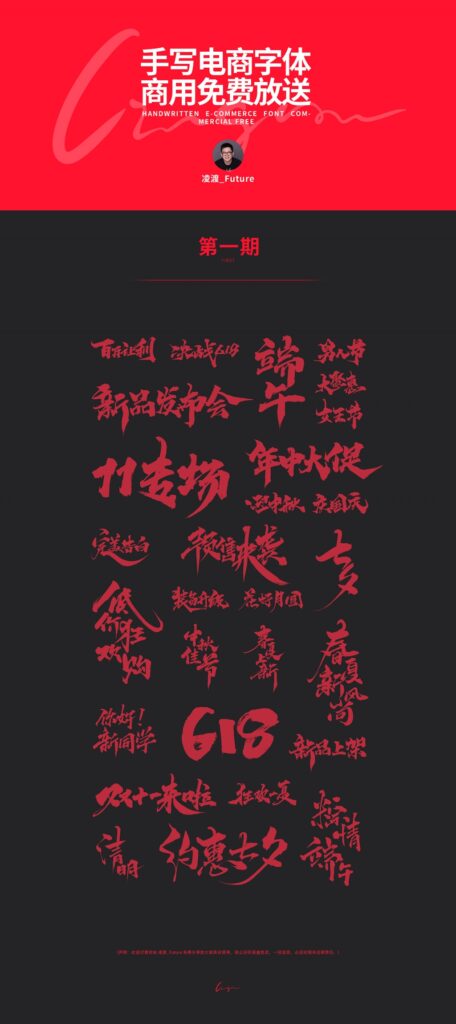 手写电商字体
商用免费放送
HANDWRITTEN E-COMMERCE FONT COM-
MERCIAL FREE
凌渡_Future
第一期
百万让利
决战618
端午
男人节
大聚惠
女王节
新品发布会
11专场
年中大促
迎中秋
庆国庆
完美告白
预售来袭
七夕
低价狂欢购
装备升级
花好月圆
中秋佳节
春夏上新
春夏新风尚
你好!
新同学
618
新品上架
双十一来啦
狂欢一夏
清明
约惠七夕
粽情端午